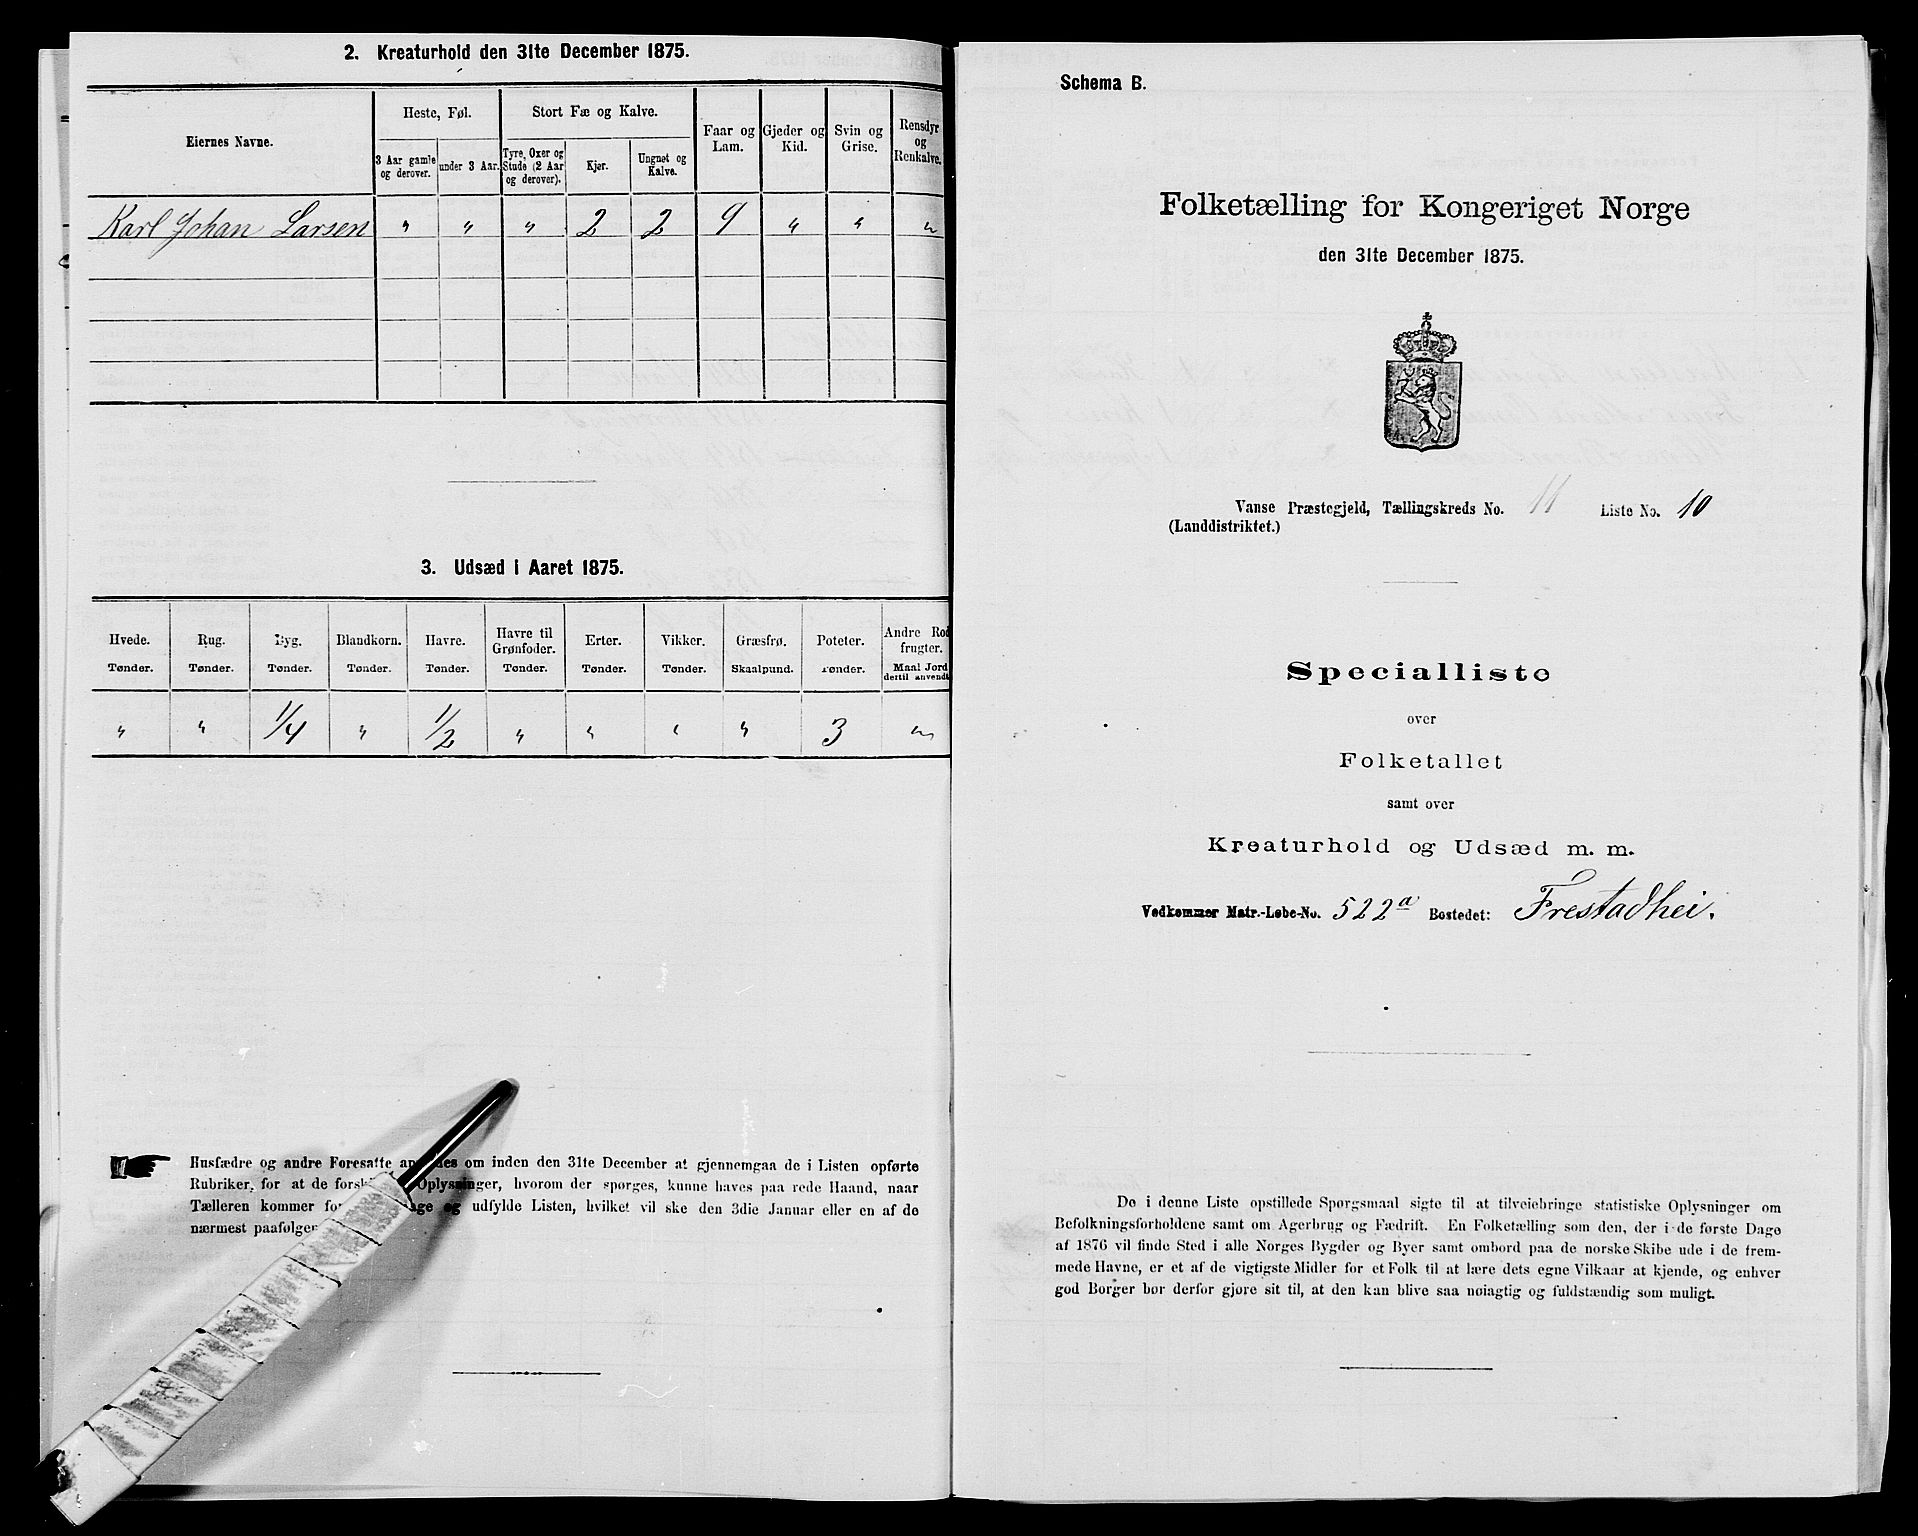 2. Kreaturhold den 31te December 1875.
Eiernes Navne.
Heste, Føl.
Stort Fæ og Kalve.
Faar og Lam.
Gjeder og Kid.
Svin og Grise.
Rensdyr og Renkalve.
3 Aar gamle og derover.
under 3 Aar.
Tyre, Oxer og Stude (2 Aar og derover).
Kjør.
Ungnøt og Kalve.
Karl Johan Larsen " " " 2 2 9 " " "
3. Udsæd i Aaret 1875.
Hvede. Rug. Byg. Blandkorn. Havre. Havre til Grønfoder. Erter. Vikker. Græsfrø. Poteter. Andre Rodfrugter.
Tønder. Tønder. Tønder. Tønder. Tønder. Tønder. Tønder. Tønder. Skaalpund. Tønder. Maal Jord dertil anvendt
" " 1/4 " 1/2 " " " " 3 "
Husfædre og andre Foresatte om inden den 31te December at gjennemgaa de i Listen opførte
Rubriker, for at de Oplysninger, hvorom der spørges, kunne haves paa rede Haand, naar
Tælleren kommer for og udfylde Listen, hvilket vil ske den 3die Januar eller en af de
nærmest
Schema B.
Folketælling for Kongeriget Norge
den 31te December 1875.
Vanse Præstegjeld, Tællingskreds No. 11 Liste No. 10
(Landdistriktet.)
Specialliste
over
Folketallet
samt over
Kreaturhold og Udsæd m. m.
Vedkommer Matr.-Løbe-No. 522a Bostedet: Frestadhei.
De i denne Liste opstillede Spørgsmaal sigte til at tilveiebringe statistiske Oplysninger om
Befolkningsforholdene samt om Agerbrug og Fædrift. En Folketælling som den, der i de første Dage
af 1876 vil finde Sted i alle Norges Bygder og Byer samt ombord paa de norske Skibe ude i de frem-
mede Havne, er et af de vigtigste Midler for et Folk til at lære dets egne Vilkaar at kjende, og enhver
god Borger bør derfor gjøre sit til, at den kan blive saa nøiagtig og fuldstændig som muligt.